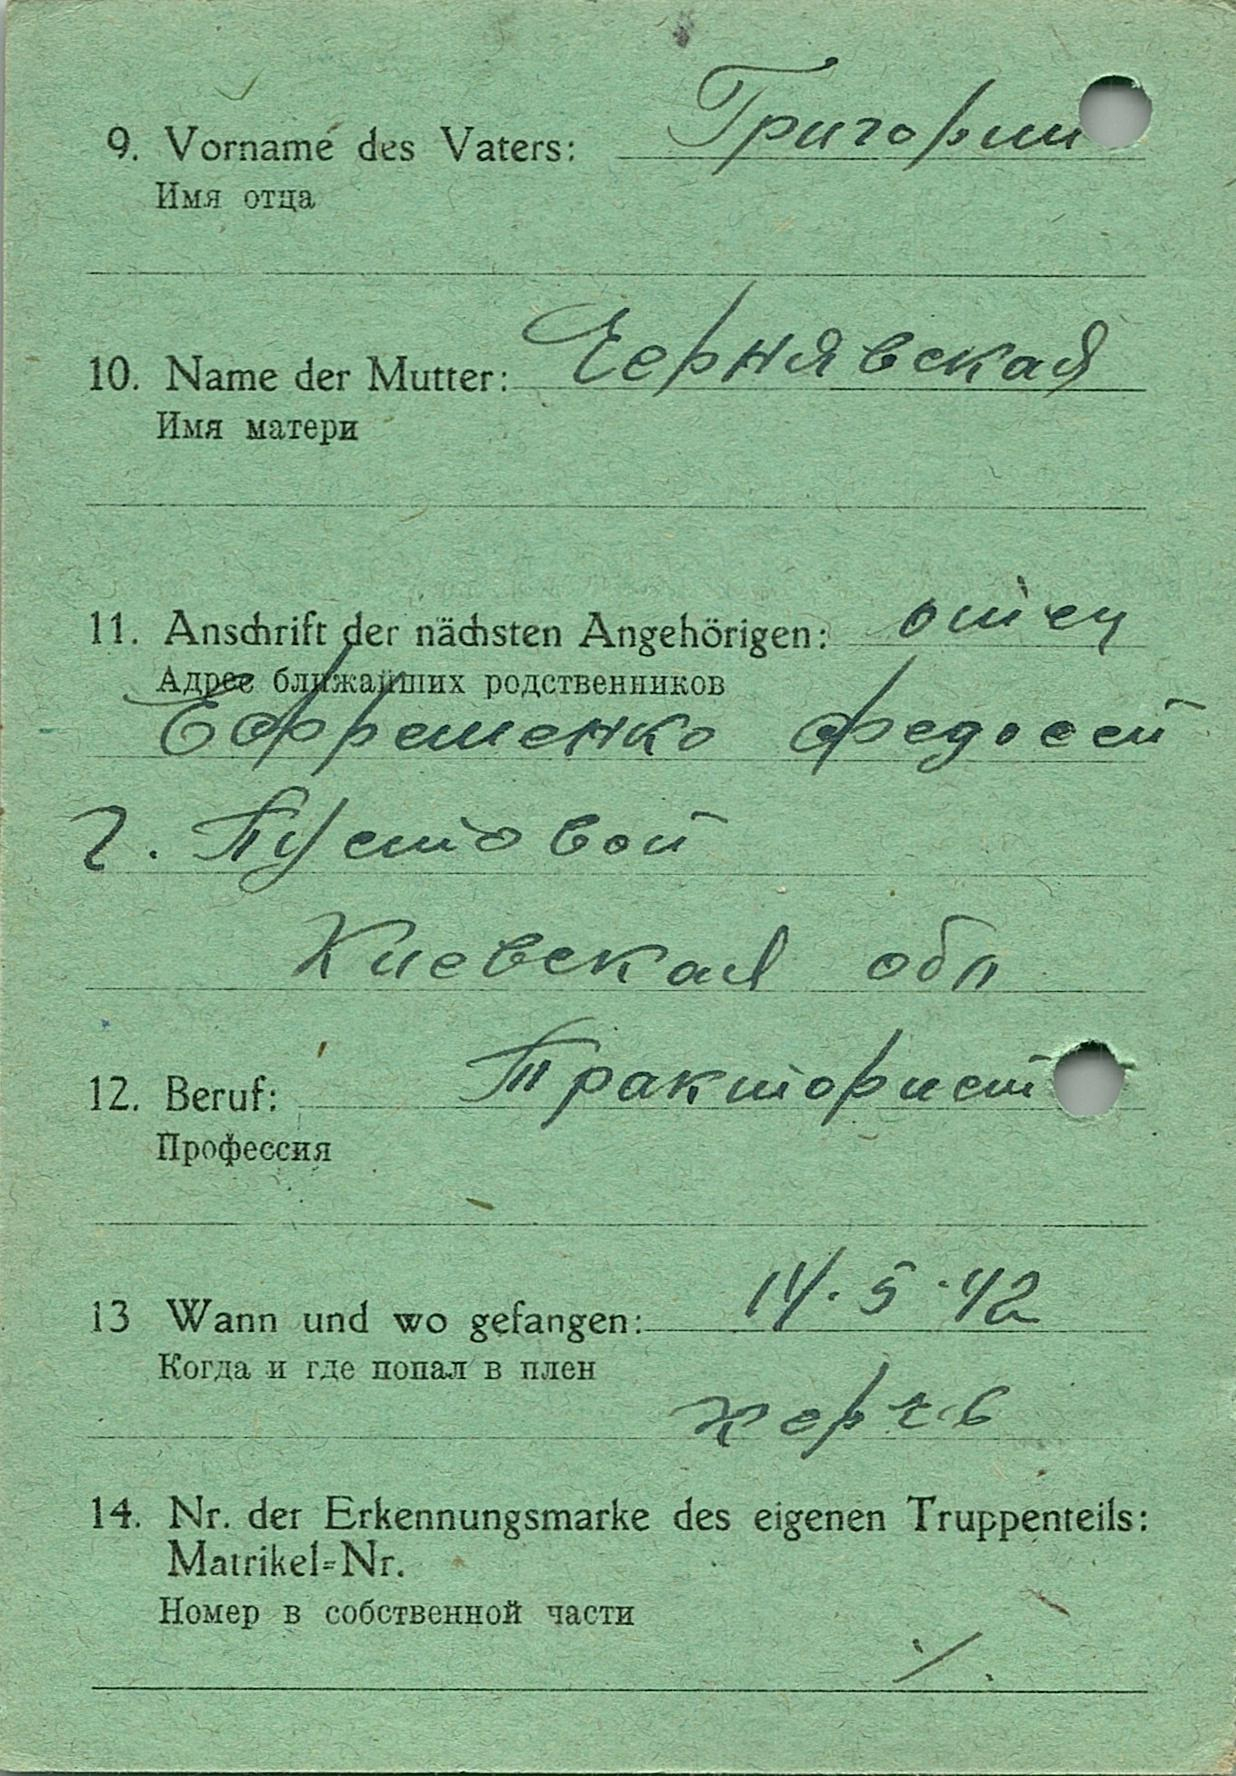 9. Vorname des Vaters: Григории
Имя отца
10. Name der Mutter: Чернявская
Имя матери
11. Anschrift der nächsten Angehörigen: отец
Адрес ближайших родственников
Ефременко Федосей
г. Пустовой
Киевская обл
12. Beruf: Тракторист
Профессия
13 Wann und wo gefangen: 14.5.42
Когда и где попал в плен
Керчь
14. Nr. der Erkennungsmarke des eigenen Truppenteils:
Matrikel=Nr.
Номер в собственной части
·/.